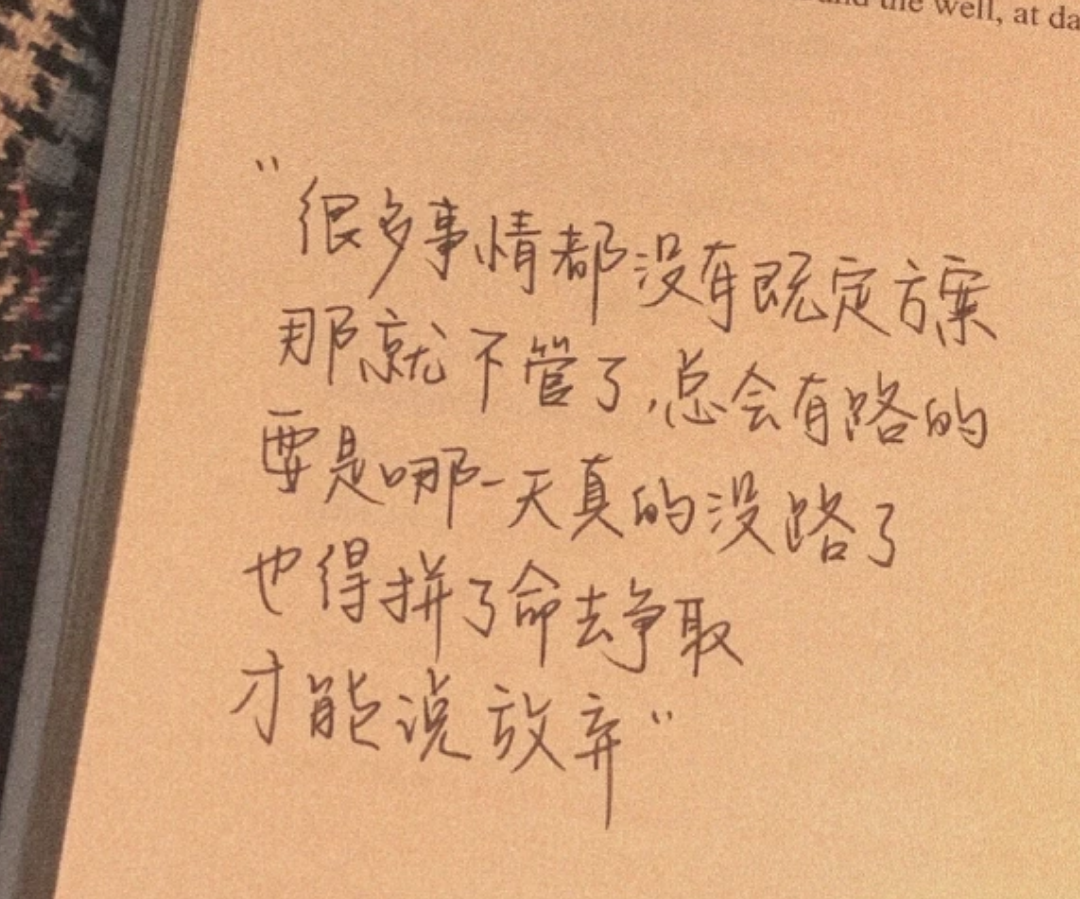 and the well, at da
"很多事情都没有既定方案
那就不管了,总会有路的
要是哪一天真的没路了
也得拼了命去争取
才能说放弃"